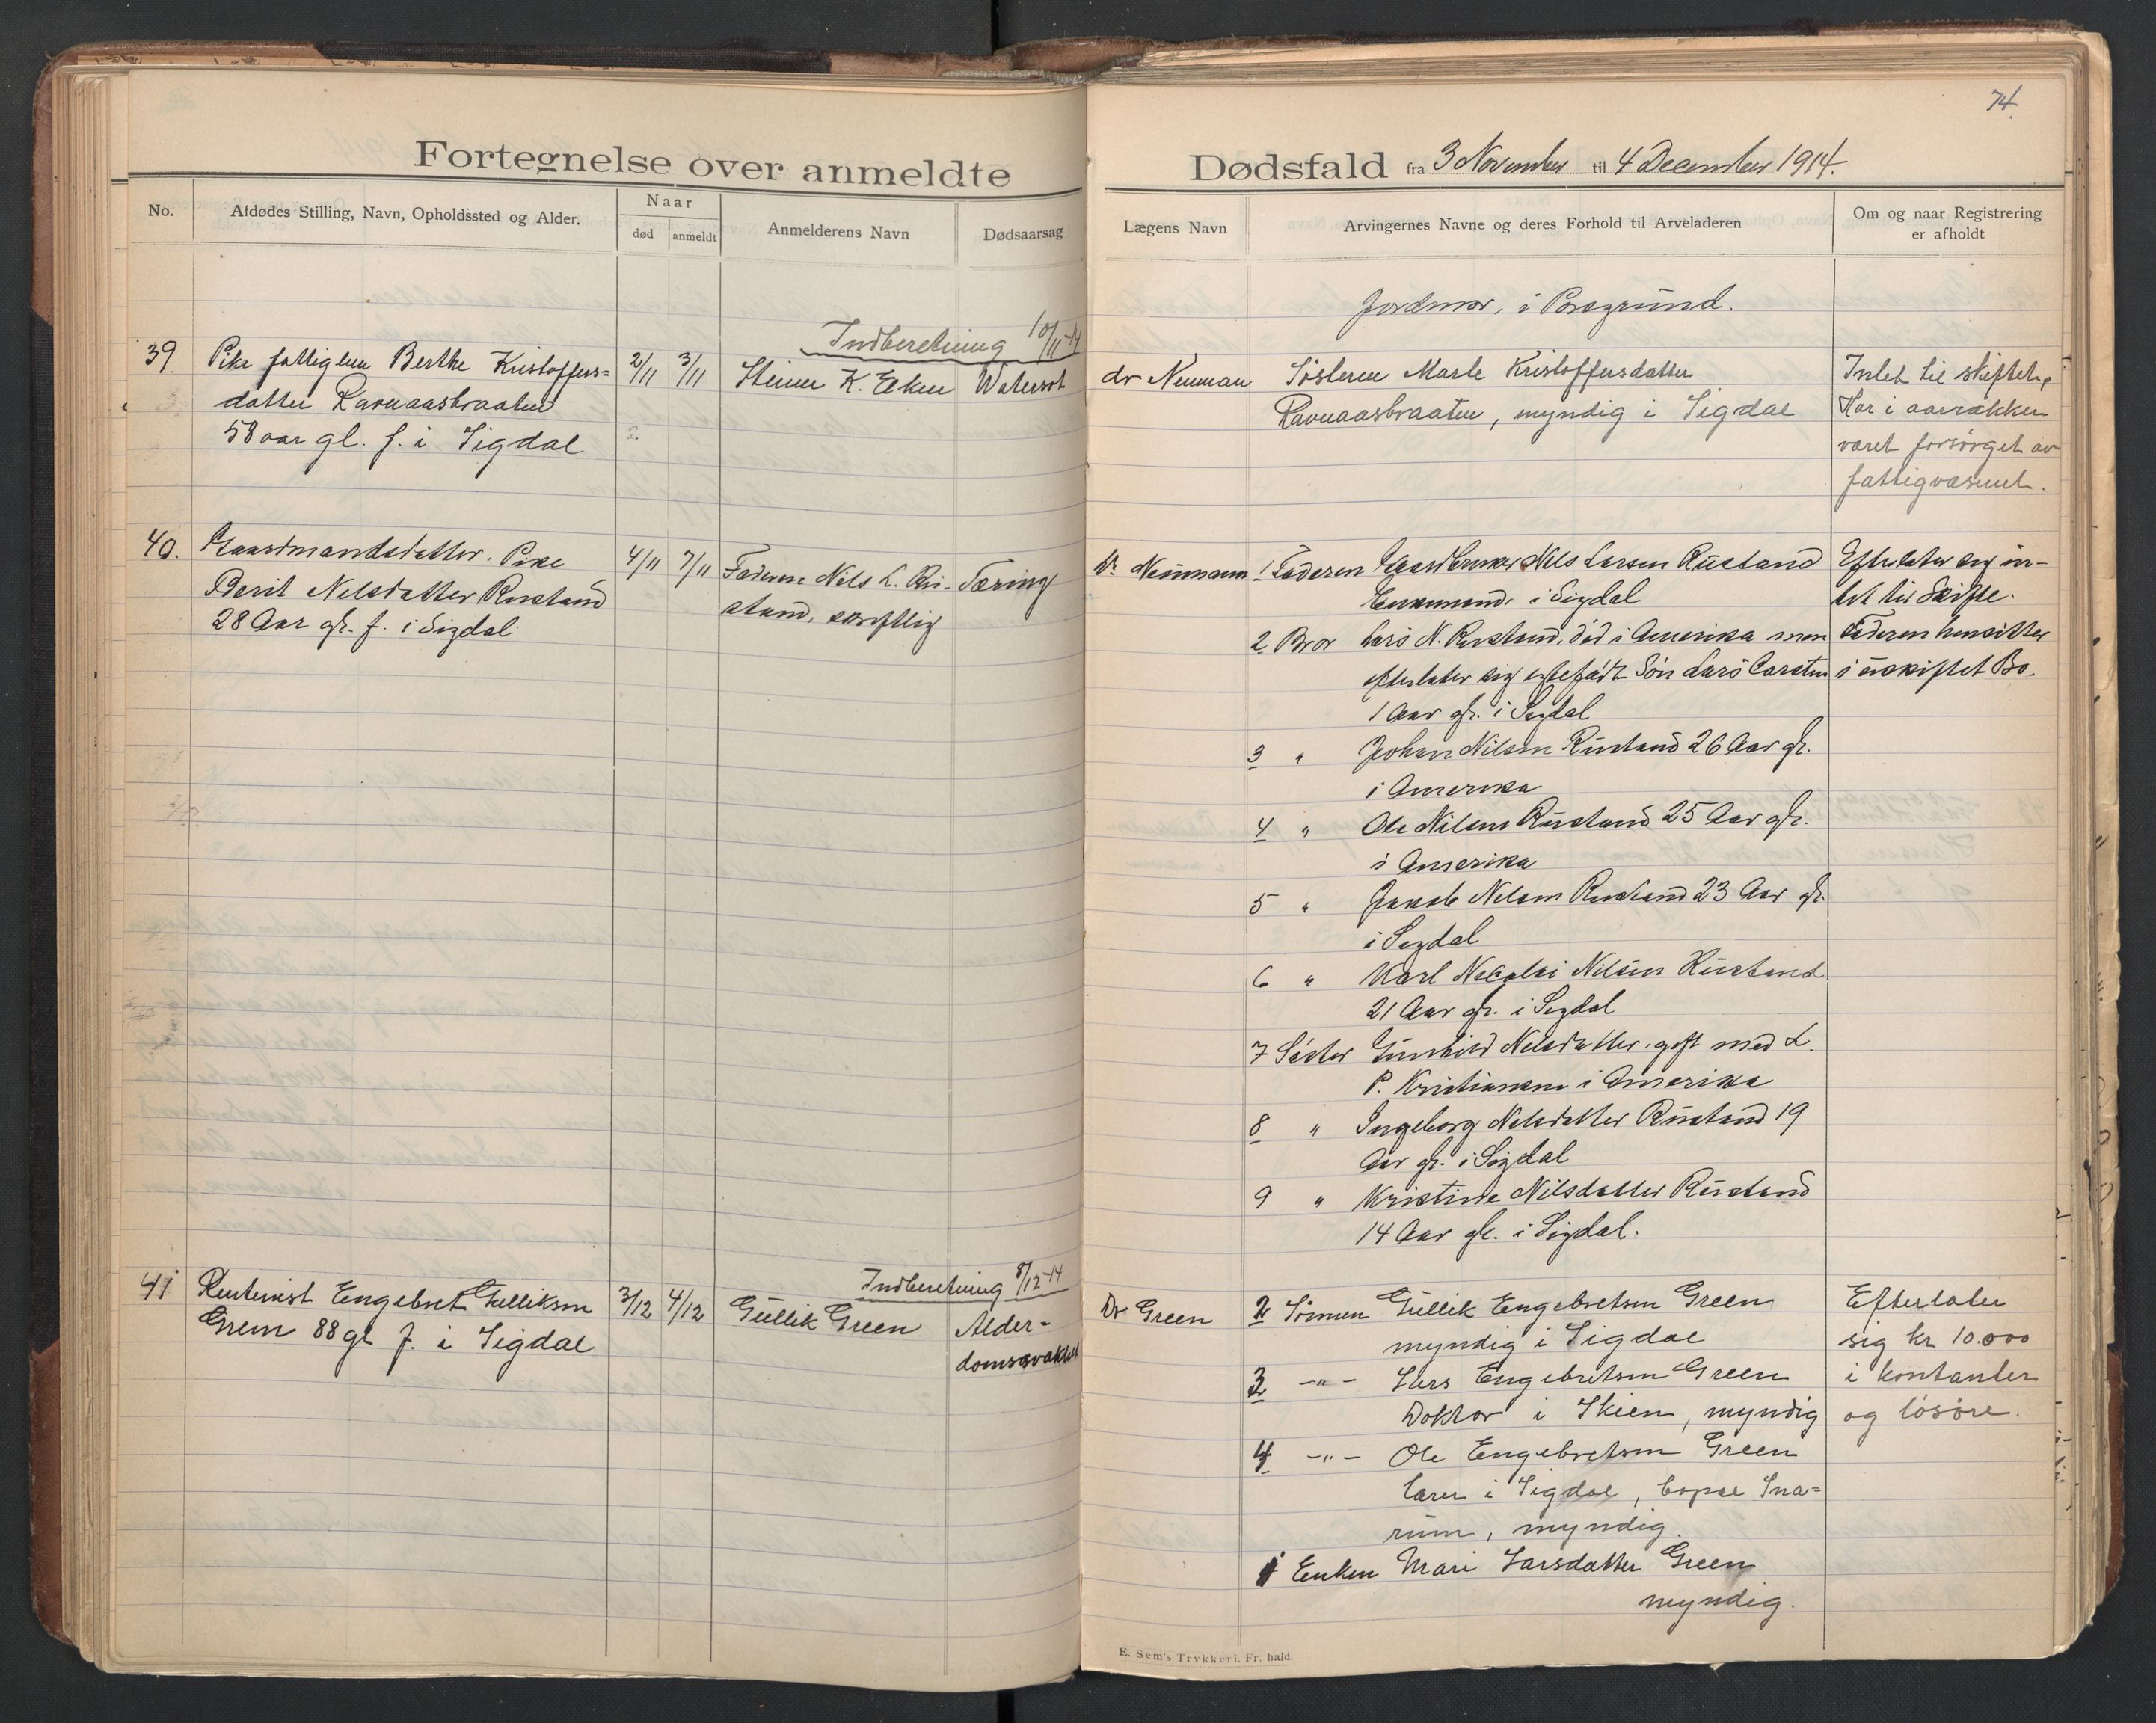 74.
Fortegnelse over anmeldte Dødsfald fra 3 November til 4 December 1914.
No.
Afdødes Stilling, Navn, Opholdssted og Alder.
Naar
død
anmeldt
Anmelderens Navn
Dødsaarsag
Lægens Navn
Arvingernes Navne og deres Forhold til Arveladeren
Om og naar Registrering
er afholdt
Jordmor, i Porsgrund.
Indberetning 10/11-14
39.
Pike fattiglem Berthe Kristoffers=
datter Ravnaasbraaten
58 aar gl. f. i Sigdal
2/11
3/11
Steiner K. Eken
Watersot
dr Neuman
Søsteren Marte Kristoffersdatter
Ravnaasbraaten, myndig i Sigdal
Intet til skiftet,
Har i aarrækker
været forsørget av
fattigvæsenet.
40.
Gaardmandsdatter. Pike
Berit Nilsdatter Rustand
28 Aar gl. f. i Sigdal
4/11
7/11
Faderen Nils L. Ru-
stand, skriftlig
Tæring
Dr Neumann
1 Faderen Gaardbruker Nils Larsen Rustand
Enkemand i Sigdal
2 Bror Lars N. Rustand, død i Amerika men
efterlater sig ektefødt Søn Lars Carsten
1 Aar gl. i Sigdal
3 " Johan Nilsen Rustand 26 Aar gl.
i Amerika
4 " Ole Nilsen Rustand 25 Aar gl.
i Amerika
5 " Jakob Nilsen Rustand 23 Aar gl.
i Sigdal
6 " Karl Nicolai Nilsen Rustand
21 Aar gl. i Sigdal
7 Søster Gunhild Nilsdatter, gift med L.
P. Kristiansen i Amerika
8 " Ingeborg Nilsdatter Rustand 19
Aar gl. i Sigdal
9 " Kristine Nilsdatter Rustand
14 Aar gl. i Sigdal.
Efterlater sig in-
tet til Skifte.
Faderen hensitter
i uskiftet Bo.
Indberetning 8/12-14
41
Rentenist Engebret Gulliksen
Green 88 gl f. i Sigdal
3/12
4/12
Gullik Green
Alder-
domssvakhet
Dr Green
2 Sønnen Gullik Engebretsen Green
myndig i Sigdal
3 -"- Lars Engebretsen Green
Doktor i Skien, myndig
4 -"- Ole Engebretsen Green
lærer i Sigdal, bopæl Sna=
rum, myndig.
1 Enken Mari Larsdatter Green
myndig.
Efterlater
sig kr 10.000
i kontanter
og løsøre.
E. Sem's Trykkeri. Fr. hald.